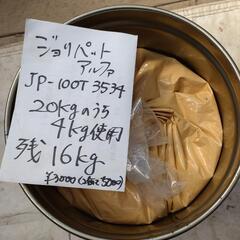 ジョリパット
アルファ
JP-100T 3534
20kgのうち
4kg使用
残16kg
¥3000(2缶で5000)